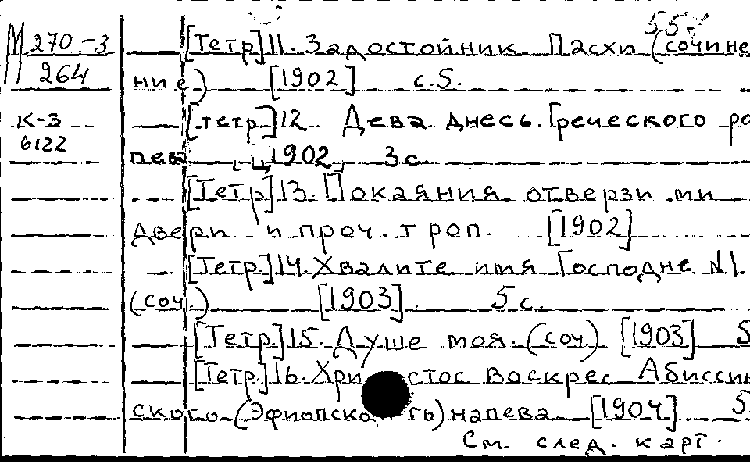 55
М 270-3 [Тетр] 11. Задостойник Пасхи (сочине
264 ние) [1902] с.5.
К-3 [тетр.] 12 Дева днесь. Греческого ро
6122 пева [1902] 3с.
[Тетр.] 13. Покаяния отверзи ми
двери и проч. троп. [1902]
[Тетр.] 14. Хвалите имя Господне №1.
(соч.) [1903] 5 с.
[Тетр.] 15. Душе моя. (соч) [1903] 5
[Тетр.] 16. Христос Воскрес Абиссин
ского (Эфиопского) напева [1904] 5
См. след. карт.